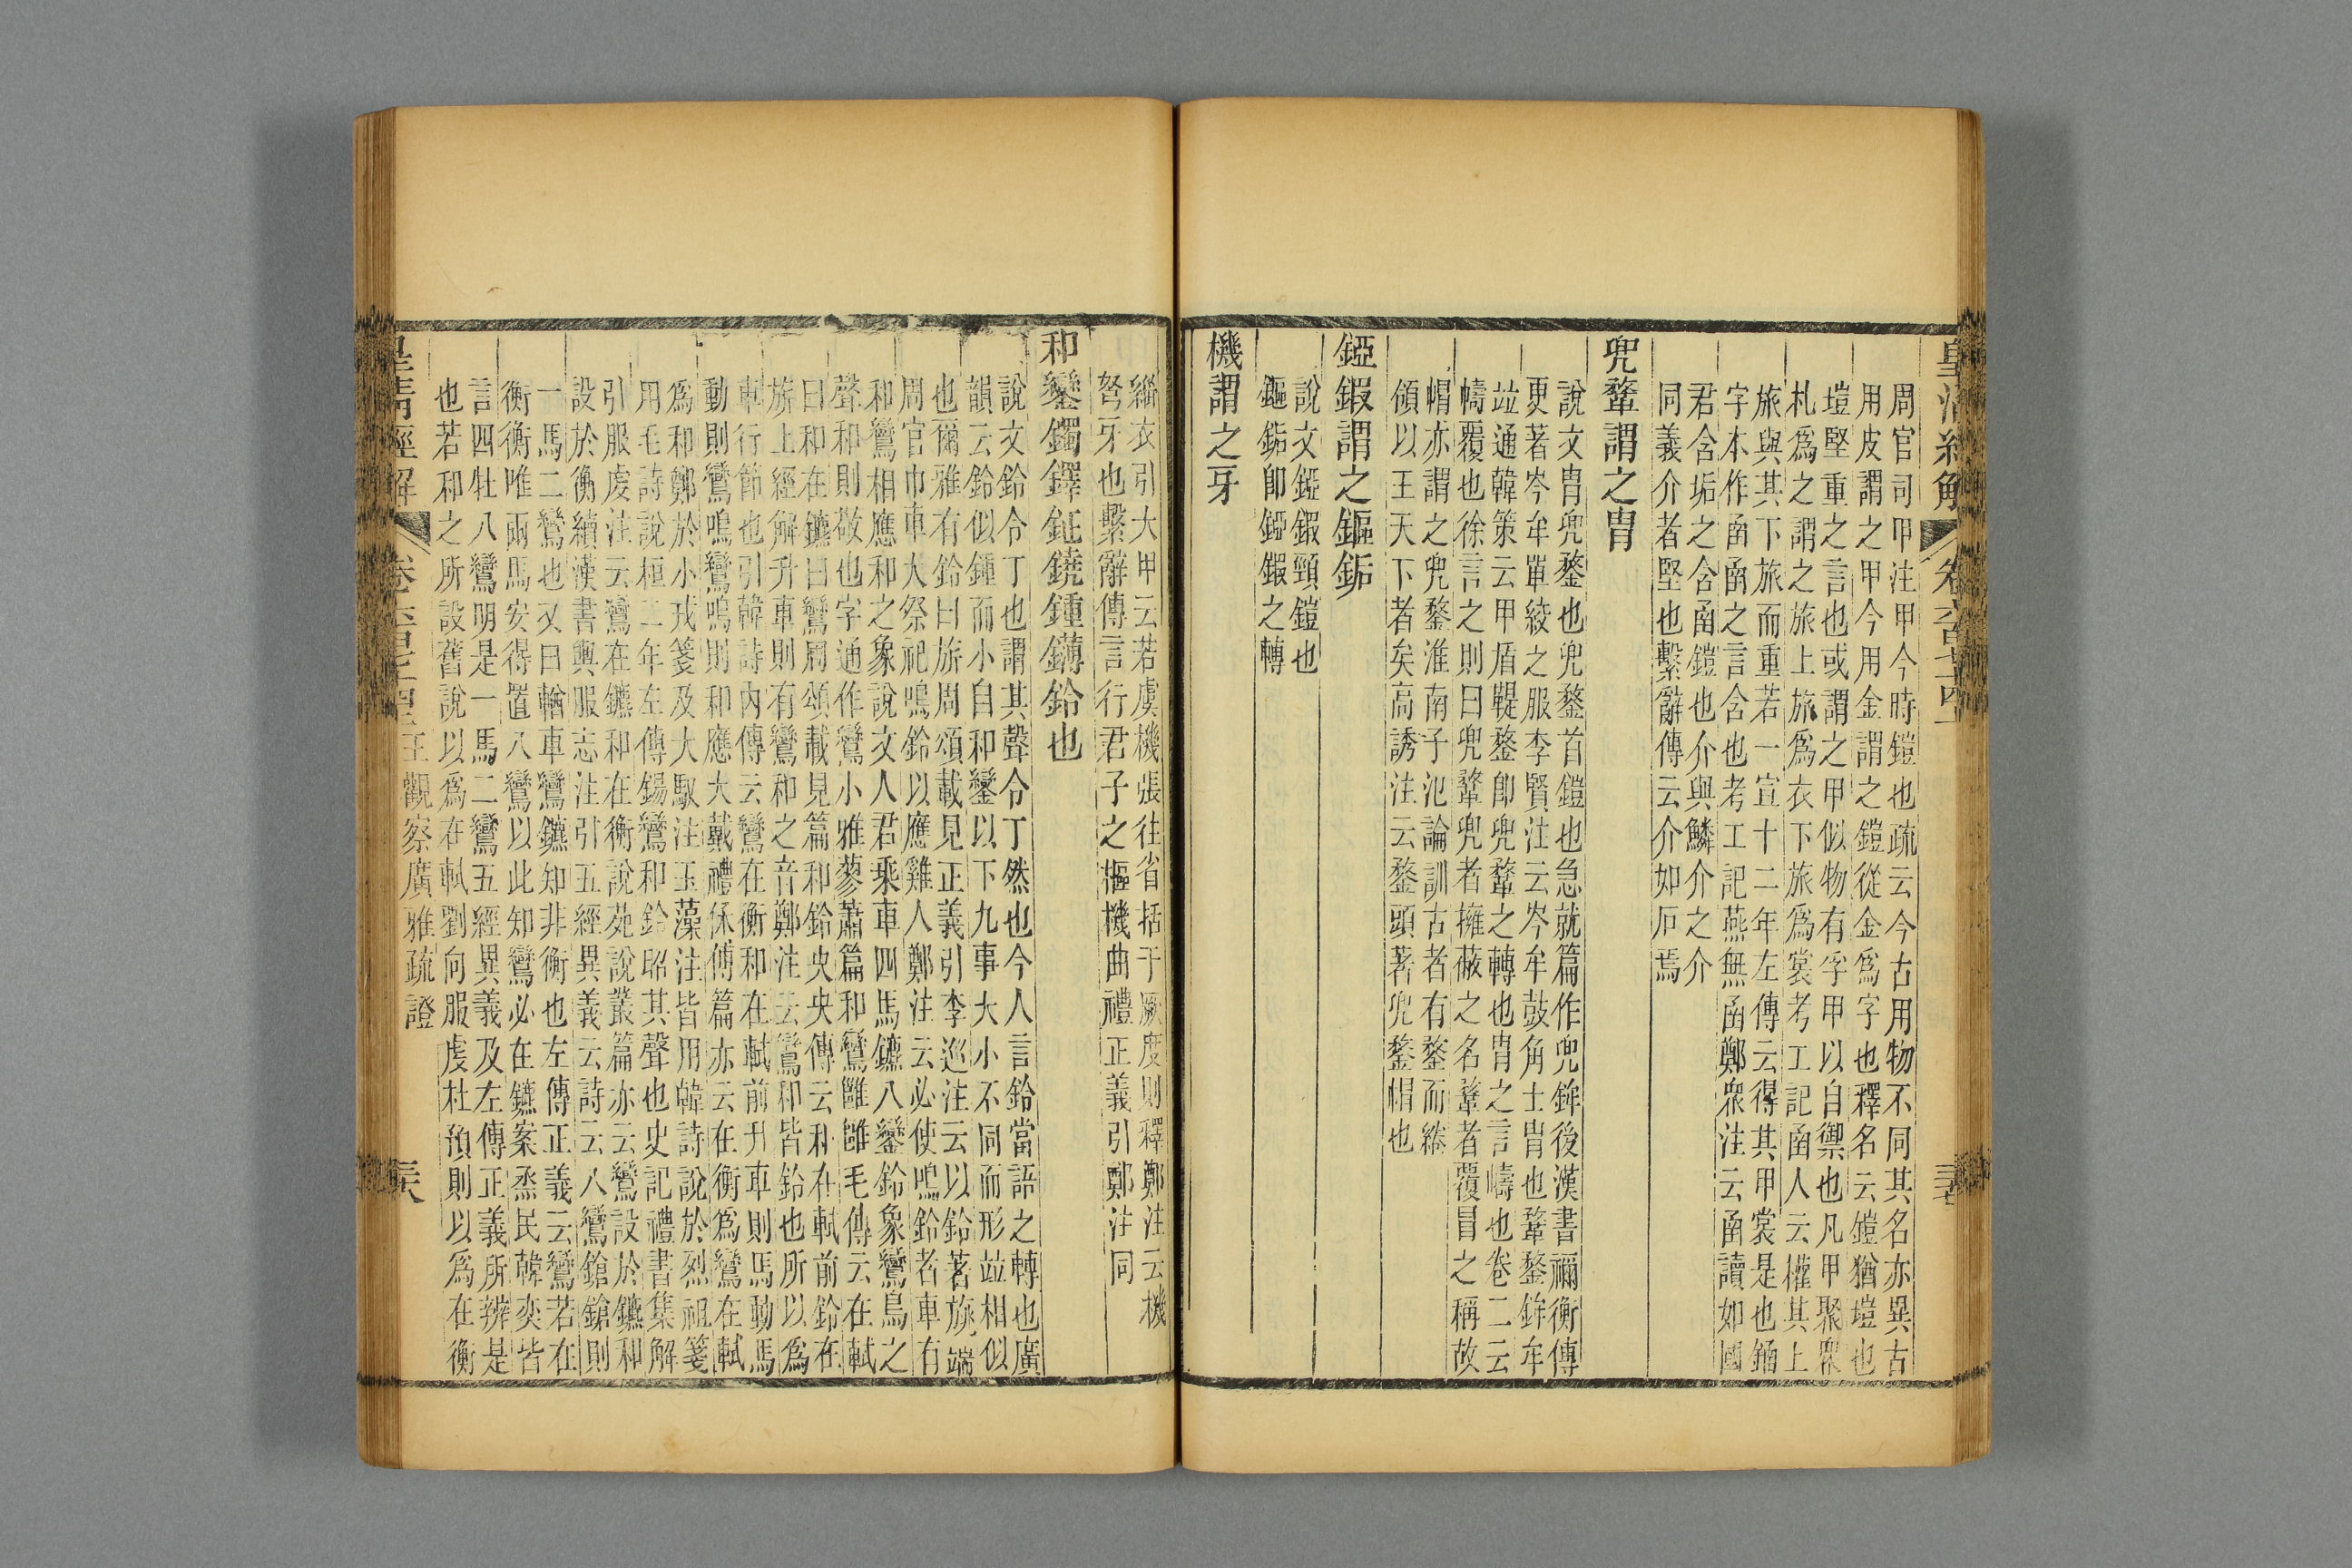 周官司甲注甲今時鎧也疏云今古用物不同其名亦異古
用皮謂之甲今用金謂之鎧從金爲字也釋名云鎧猶塏也
塏堅重之言也或謂之甲似物有孚甲以自禦也凡甲聚衆
札爲之謂之旅上旅爲衣下旅爲裳考工記函人云權其上
旅與其下旅而重若一宣十二年左傳云得其甲裳是也鋿
字本作函函之言含也考工記燕無函鄭衆注云函讀如國
君含垢之含函鎧也介與鱗介之介
同義介者堅也繫辭傳云介如石焉
兜鞪謂之冑
說文冑兜鍪也兜鍪首鎧也急就篇作兜鉾後漢書禰衡傳
更著岑牟單絞之服李賢注云岑牟鼓角士冑也鞪鍪鉾牟
竝通韓策云甲盾鞮鍪卽兜鞪之轉也冑之言幬也卷二云
幬覆也徐言之則曰兜鞪兜者擁蔽之名鞪者覆冒之稱故
帽亦謂之兜鍪淮南子氾論訓古者有鍪而綣
領以王天下者矣高誘注云鍪頭著兜鍪帽也
錏鍜謂之鏂銗
說文錏鍜頸鎧也
鏂銗卽錏鍜之轉
機謂之牙
緇衣引大甲云若虞機張往省括于厥度則釋鄭注云機
弩牙也繫辭傳言行君子之樞機曲禮正義引鄭注同
和鑾鐲鐸鉦鐃鍾鏄鈴也
說文鈴令丁也謂其聲令丁然也今人言鈴當語之轉也廣
韻云鈴似鍾而小自和鑾以下九事大小不同而形竝相似
也爾雅有鈴曰旂周頌載見正義引李巡注云以鈴著旐端
周官巾車大祭祀鳴鈴以應雞人鄭注云必使鳴鈴者車有
和鸞相應和之象說文人君乘車四馬鑣八鑾鈴象鸞鳥之
聲和則敬也字通作鸞小雅蓼蕭篇和鸞雝雝毛傳云在軾
曰和在鑣曰鸞周頌載見篇和鈴央央傳云和在軾前鈴在
旂上經解升車則有鸞和之音鄭注云鸞和皆鈴也所以爲
車行節也引韓詩內傳云鸞在衡和在軾前升車則馬動馬
動則鸞鳴鸞鳴則和應大戴禮保傅篇亦云在衡爲鸞在軾
爲和鄭於小戎箋及大馭注玉藻注皆用韓詩說於烈祖箋
用毛詩說桓二年左傳鍚鸞和鈴昭其聲也史記禮書集解
引服虔注云鸞在鑣和在衡說苑說叢篇亦云鸞設於鑣和
設於衡續漢書輿服志注引五經異義云詩云八鸞鎗鎗則
一馬二鸞也又曰輶車鸞鑣知非衡也左傳正義云鸞若在
衡衡唯兩馬安得置八鸞以此知鸞必在鑣案烝民韓奕皆
言四牡八鸞明是一馬二鸞五經異義及左傳正義所辨是
也若和之所設舊說以爲在軾劉向服虔杜預則以爲在衡
皇清經解 王觀察廣雅疏證